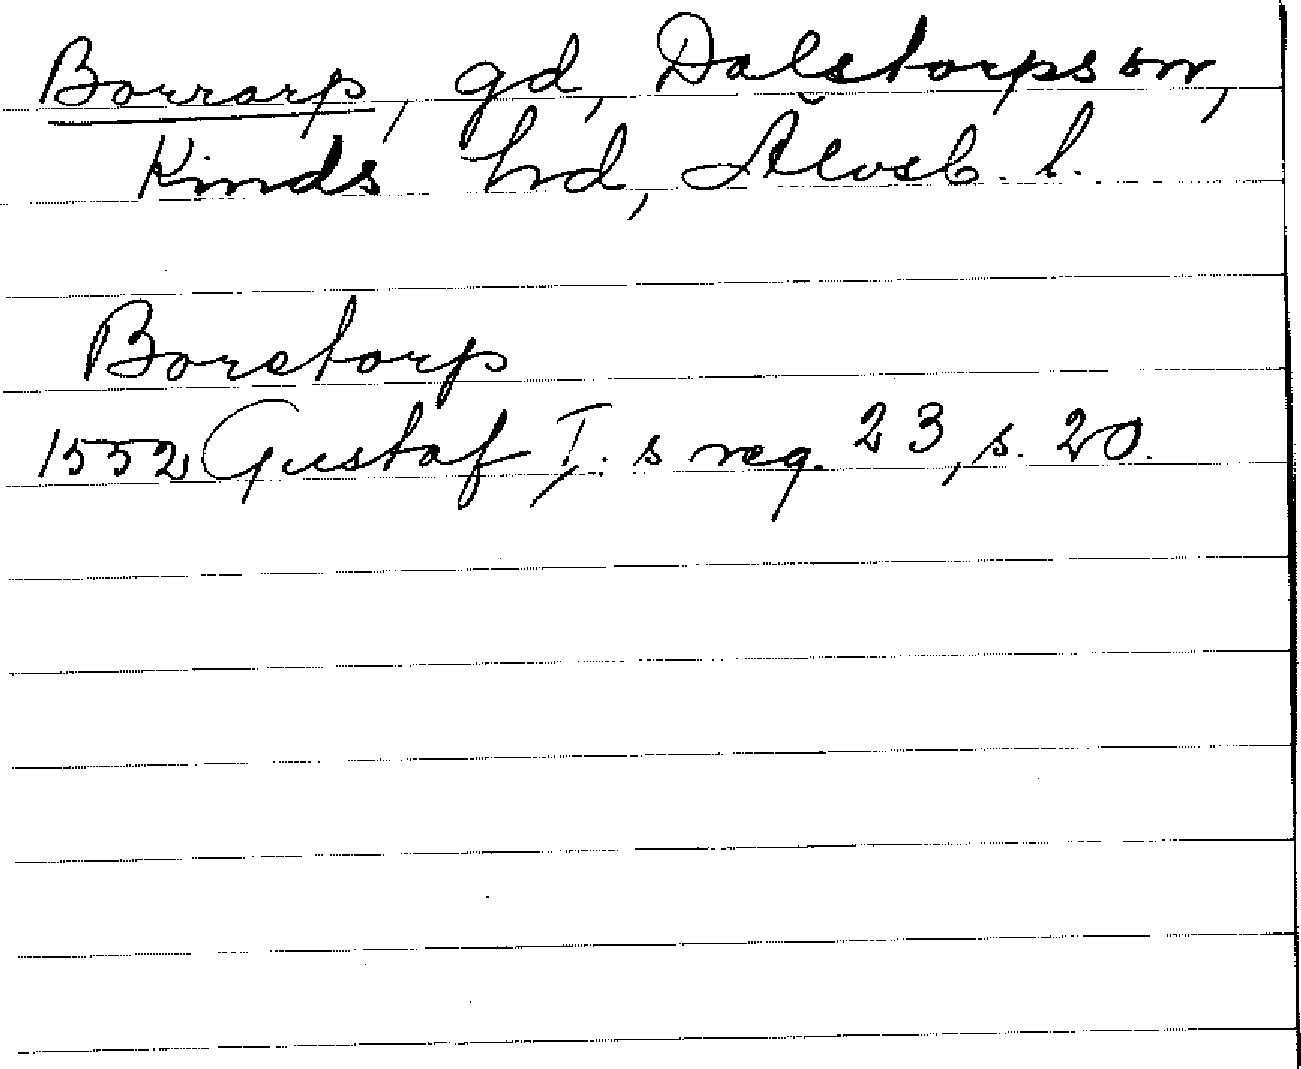 Borrarp, gd, Dalstorps sn,
Kinds hd, Älvsb. l.
Borstorp
1552 Gustaf I. s reg. 23, s. 20.